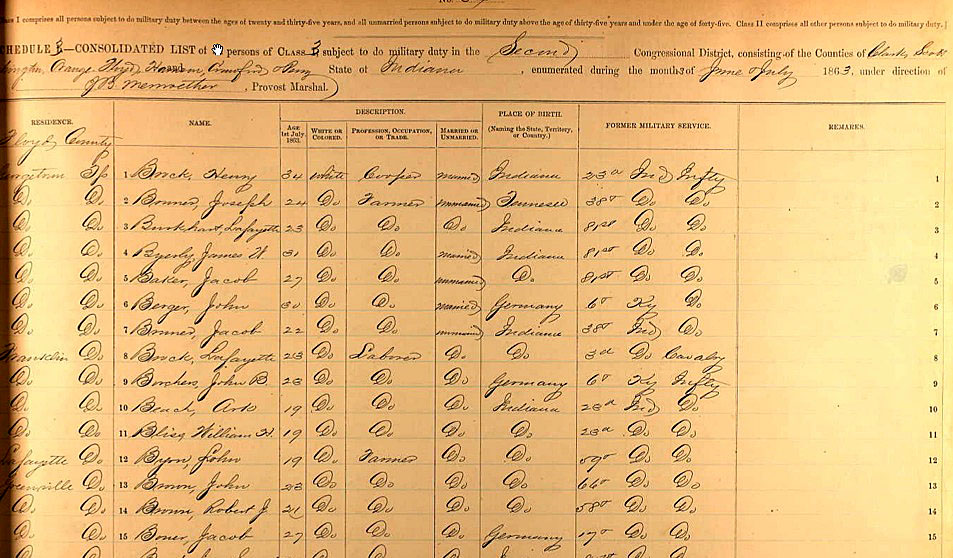 Class I comprises all persons subject to do military duty between the ages of twenty and thirty-five years, and all unmarried persons subject to do military duty above the age of thirty-five years and under the age of forty-five. Class II comprises all other persons subject to do military duty.
SCHEDULE —CONSOLIDATED LIST of persons of CLASS 3 subject to do military duty in the Second Congressional District, consisting of the Counties of Clark, Scott
Orange, Floyd, Crawford & Perry State of Indiana, enumerated during the month of June & July 1863, under direction of
J B Merriwether, Provost Marshal.
DESCRIPTION.
RESIDENCE. NAME. AGE 1st July, 1863. WHITE OR COLORED. PROFESSION, OCCUPATION, OR TRADE. MARRIED OR UNMARRIED. PLACE OF BIRTH. (Naming the State, Territory, or Country.) FORMER MILITARY SERVICE. REMARKS.
Floyd County
Tp 1 Henry 34 White Cooper married Indiana 23d Ind Inftry 1
Do Do 2 Joseph 24 Do Farmer unmarried Tennessee 38th Do Do 2
Do Do 3 Burkhart, Lafayette 23 Do Do Do Indiana 81st Do Do 3
Do Do 4 Byerly, James H 31 Do Do married Indiana 81st Do Do 4
Do Do 5 Baker, Jacob 27 Do Do unmarried Do 81st Do Do 5
Do Do 6 Berger, John 30 Do Do married Germany 6th Ky Do 6
Do Do 7 Jacob 22 Do Do unmarried Indiana 38th Ind Do 7
Franklin Do 8 Lafayette 23 Do Laborer Do Do 3d Do Cavalry 8
Do Do 9 Borchers, John B. 23 Do Do Do Germany 6th Ky Inftry 9
Do Do 10 Beach, 19 Do Do Do Indiana 23d Ind Do 10
Do Do 11 William H. 19 Do Do Do Do 23d Do Do 11
Lafayette Do 12 John 19 Do Farmer Do Do 59th Do Do 12
Greenville Do 13 Brown, John 23 Do Do Do Do Do Do 13
Do Do 14 Brown, Robert J. 21 Do Do Do Do 58th Do Do 14
Do Do 15 Boner, Jacob 27 Do Do Do Germany 17th Do Do 15